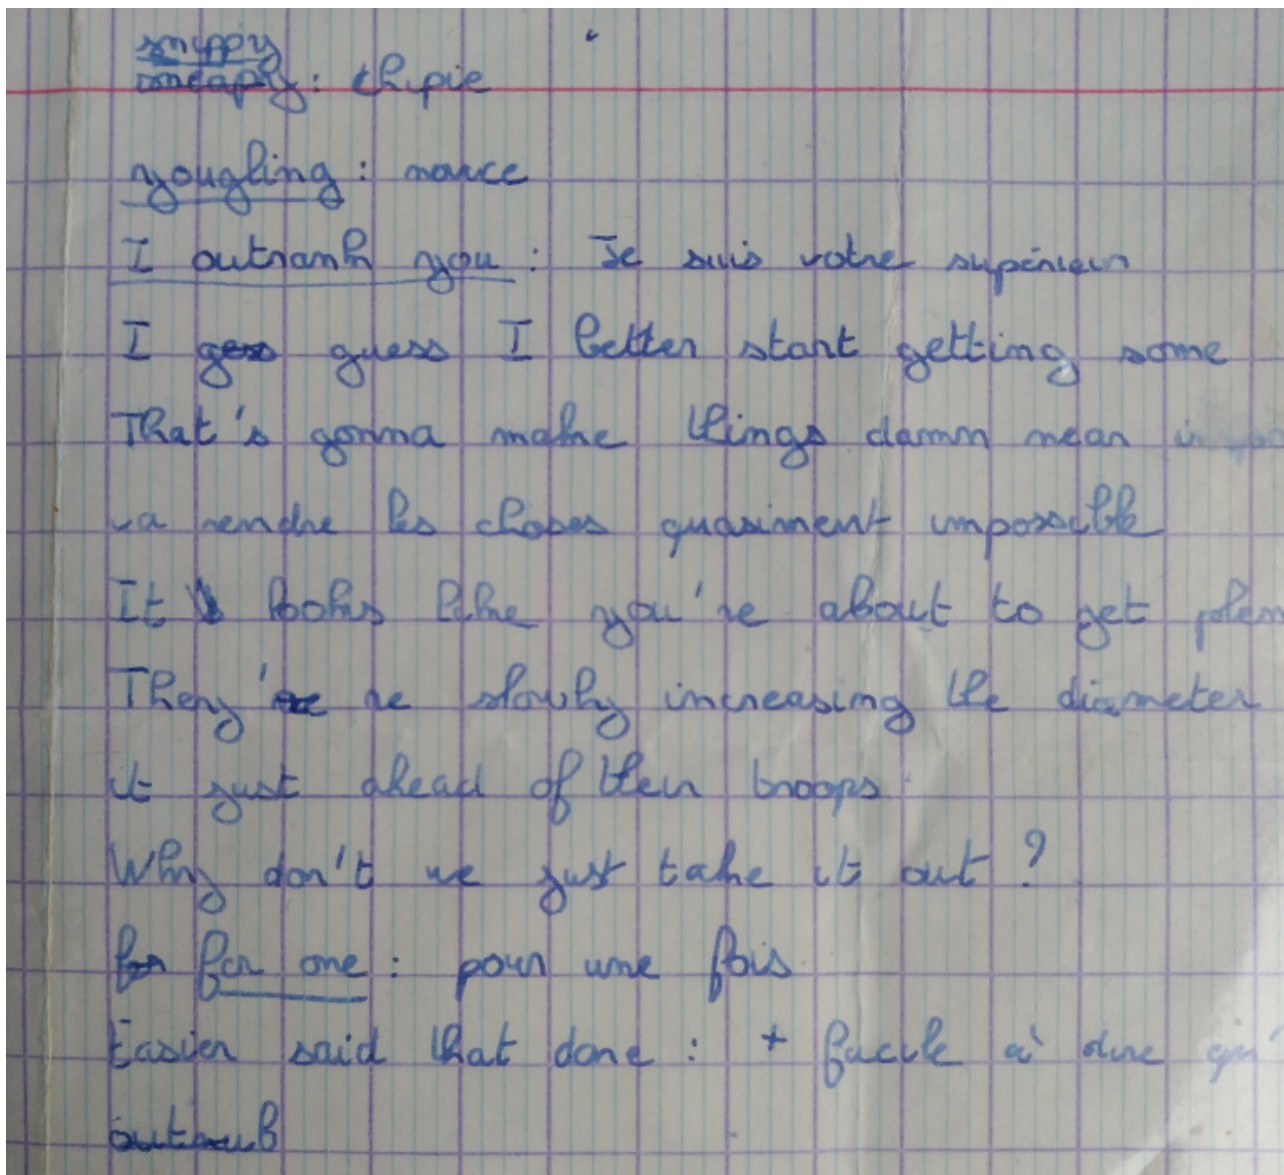 snippy
: chipie
yougling : novice
I outrank you : Je suis votre supérieur
I guess I better start getting some
That's gonna make things damn near
va rendre les choses quasiment impossible
It looks like you're about to get
They're slowly increasing the diameter
it just ahead of their troops
Why don't we just take it out ?
for one : pour une fois
Easier said that done : + facile à dire qu'